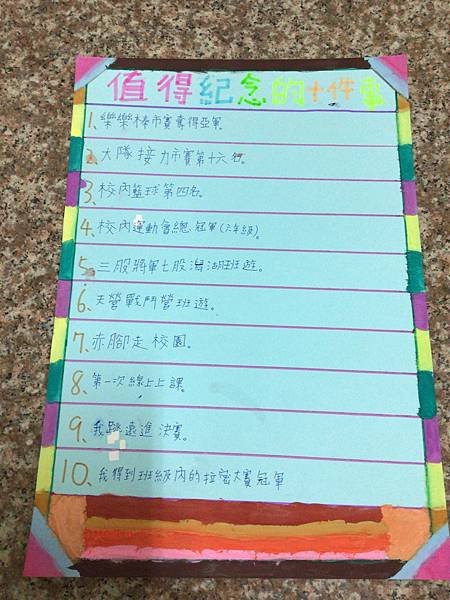 值得紀念的十件事
1、樂樂棒市賽奪得亞軍。
2、大隊接力市賽第十六名。
3、校內籃球第四名。
4、校內運動會總冠軍(六年級)。
5、三股將軍七股潟湖班遊。
6、天營戰鬥營班遊。
7、赤腳走校園。
8、第一次線上上課。
9、我跳遠進決賽。
10、我得到班級內的拉密大賽冠軍